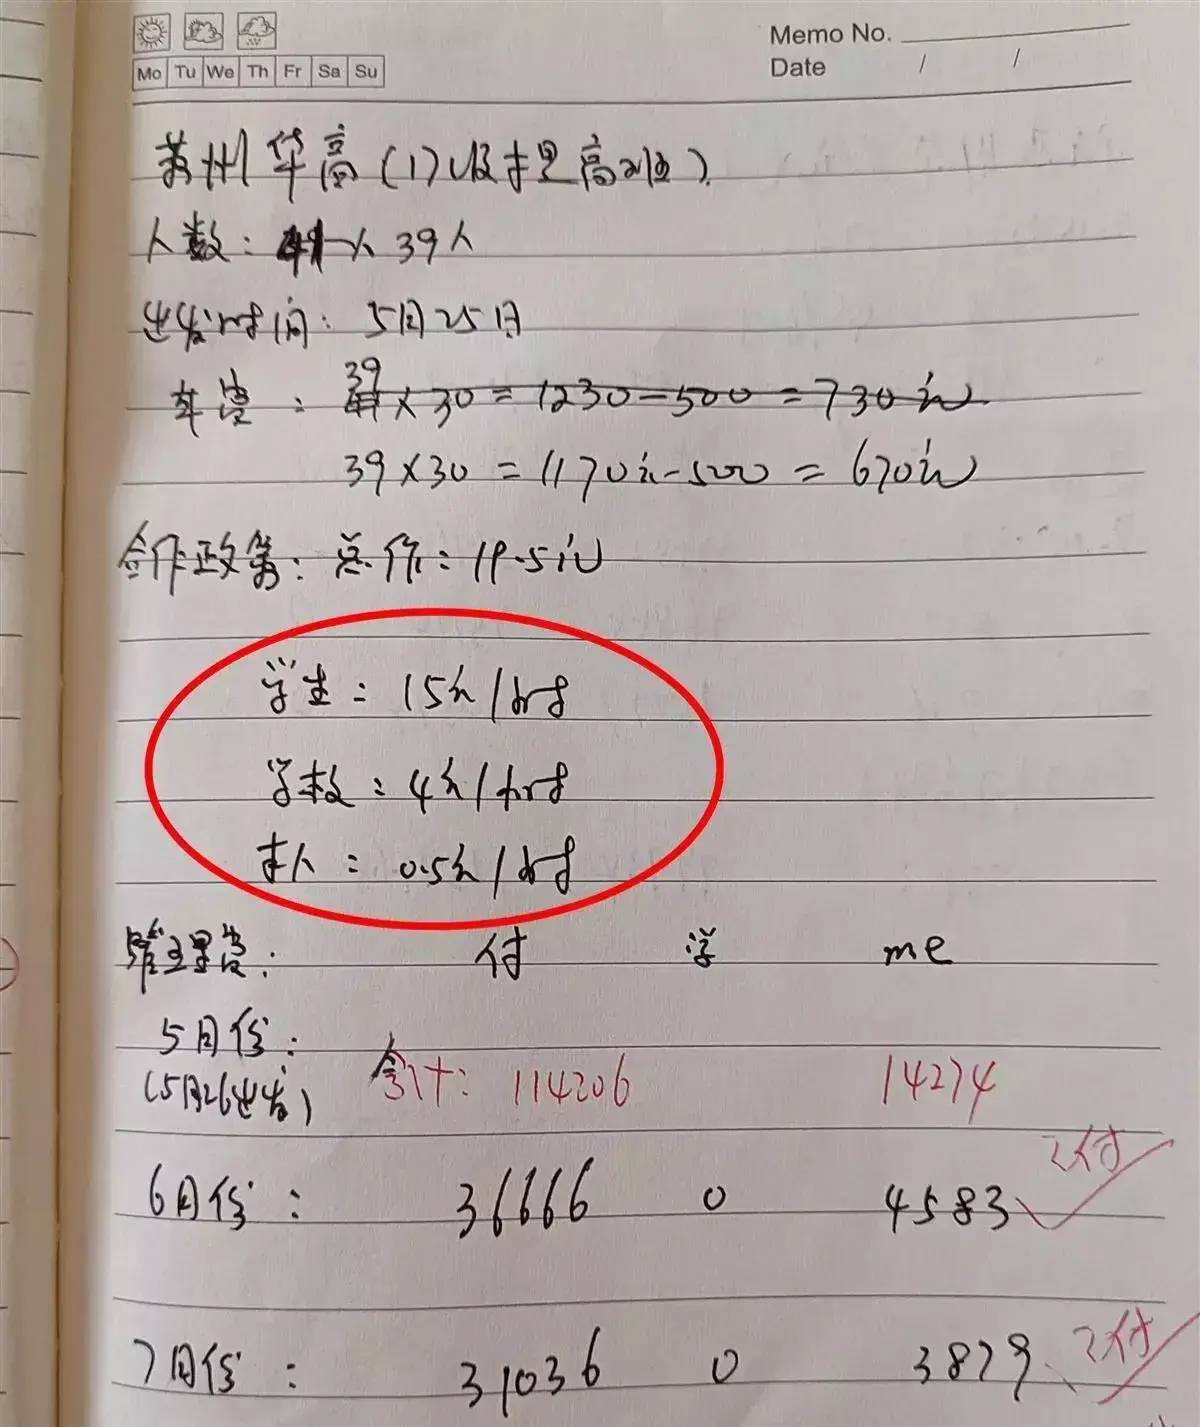 Memo No.
Mo Tu We Th Fr Sa Su
Date / /
苏州华高(1)
人数: 41人 39人
出发时间: 5月25日
车费: 39 41×30=1230-500=730元
39×30=1170元-500=670元
合作政策: 总价: 19.5元
学生: 15元/时
学校: 4元/时
本人: 0.5元/时
管理费: 付 学 me
5月份:
(5月26出发) 合计: 114206 14274
已付
6月份: 36666 0 4583
已付
7月份: 31036 0 3879